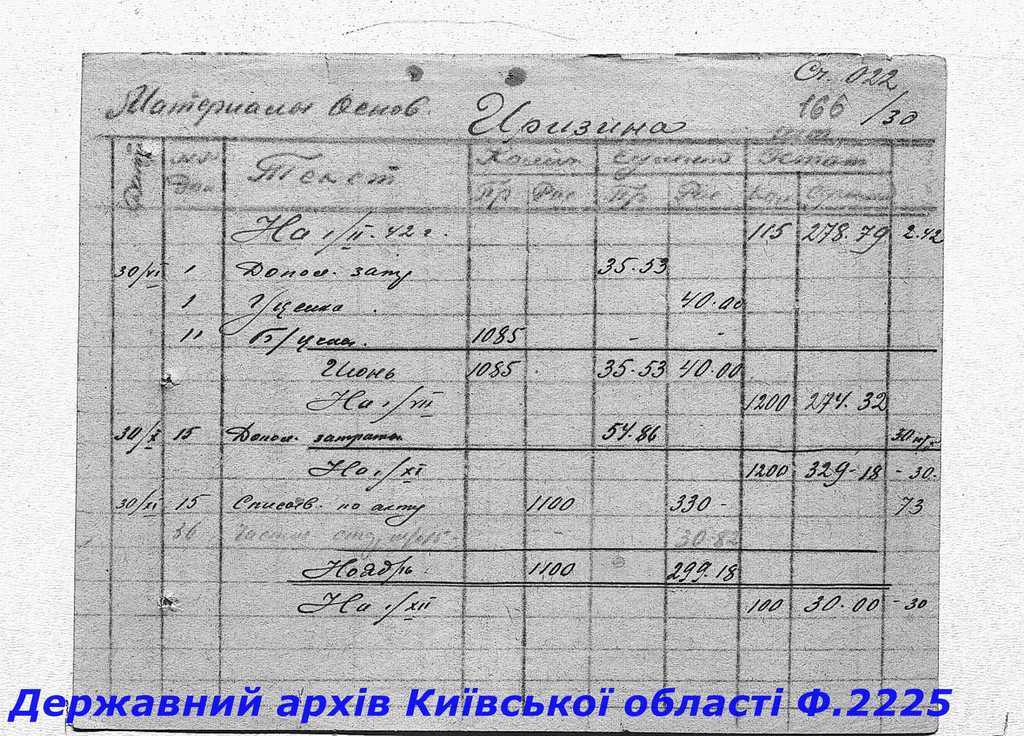 Сч. 022
Материалы Основ. Иризина 166/30
Дата Текст Колич Сумма Остаток
Пр Рас Пр Рас Кол Сумма
На 1/II-42 г. 115 278.79 2.42
30/VI 1 Допол. затр 35.53
1 Уценка 40.00
11 1085 - -
Июнь 1085 35.53 40.00
На 1/VII 1200 274.32
30/X 15 Допол. затраты 54.86
На 1/XI 1200 329-18 -30.
30/XI 15 Списыв. по акту 1100 330- 73
36 30.82
Ноябрь. 1100 299.18
На 1/XII 100 30.00 -30
Державний архів Київської області Ф.2225